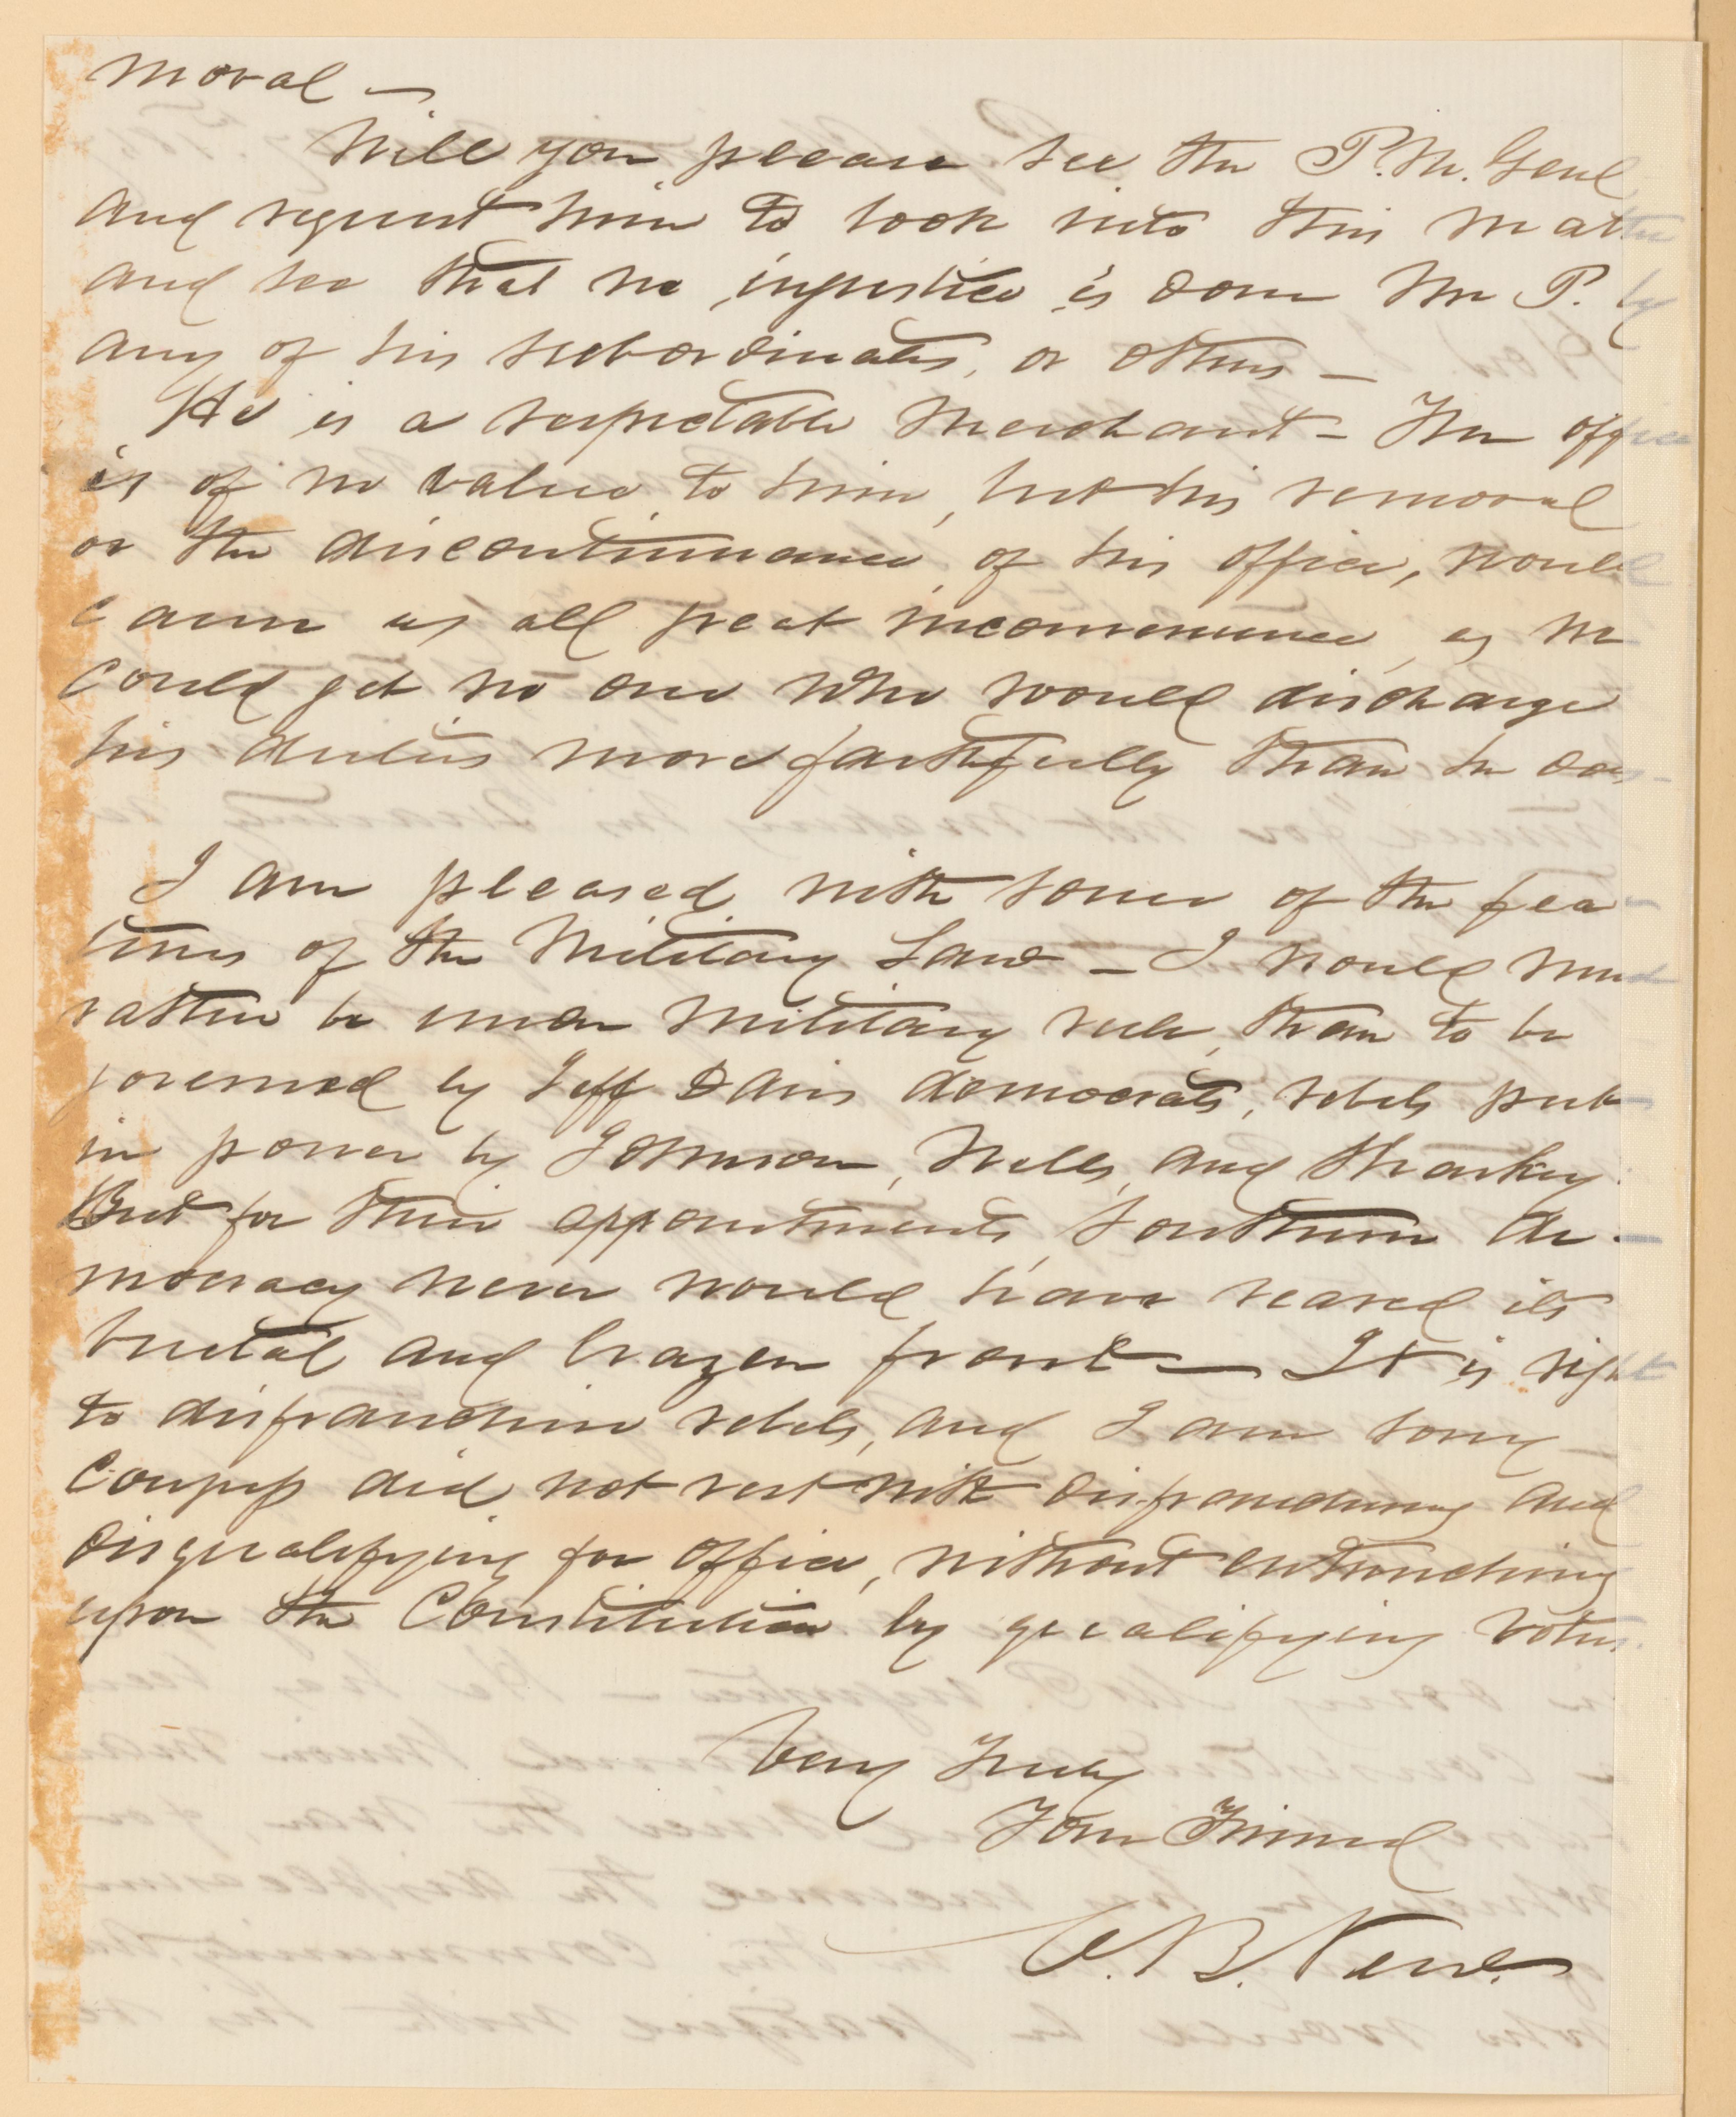 moval —
Will you please see the P.M. Genl
and request him to look into this matter
and see that no injustice is done Mr P. by
any of his subordinates, or others —
He is a respectable merchant – The office
is of no value to him, but his removal
or the discontinuance of his office, would
cause us all great inconvenience, as we
could get no one who would discharge
his duties more faithfully than he does
I am pleased with some of the fea-
tures of the Military Law – I would much
rather be under military rule, than to be
governed by Jeff Davis democrats, rebels put
in power by Johnson, Wells, and Sharkey.
But for their appointments, Southern de-
mocracy never would have reared its
brutal and brazen front — It is right
to disfranchise rebels, and I am sorry
Congress did not rest with disfranchising and
disqualifying for office, without entrenching
upon the Constitution by qualifying voters.
Very Truly
Your Friend
B. New